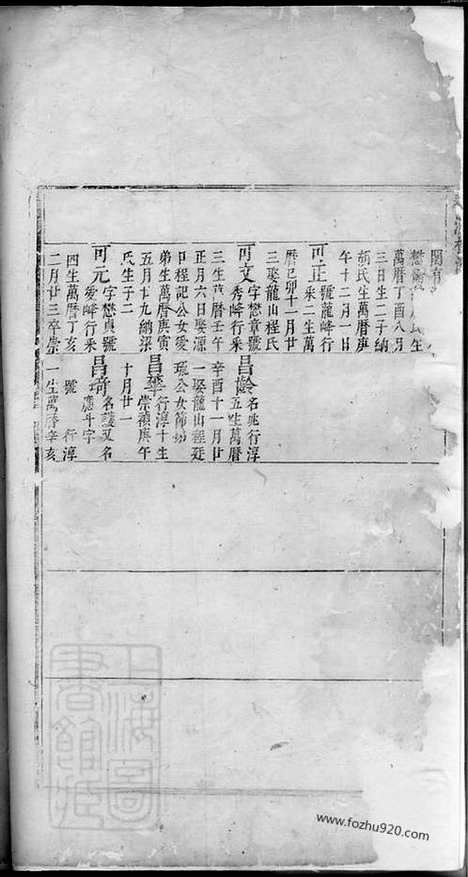 萬曆丁酉八月
三日生二子納
胡氏生萬曆庚
午十二月一日
可正 號龍峰行
釆二生萬
曆己卯十一月廿
三娶龍山程氏
可文 字懋章號
秀峰行釆
三生萬曆壬午
正月六日娶源
口程記公女愛
弟生萬曆庚寅
五月十九納梁
氏生子二
可元 字懋貞號
愛峰行釆
四生萬曆丁亥
二月廿三卒崇
昌齡 名兆行淳
五生萬曆
辛酉十一月廿
一娶龍山程廷
公女節幼
昌華 行淳十生
崇禎庚午
十月廿一
昌琦 名護又名
應斗字
號 行淳
一生萬曆辛亥
上海圖書館藏
www.fozhu920.com